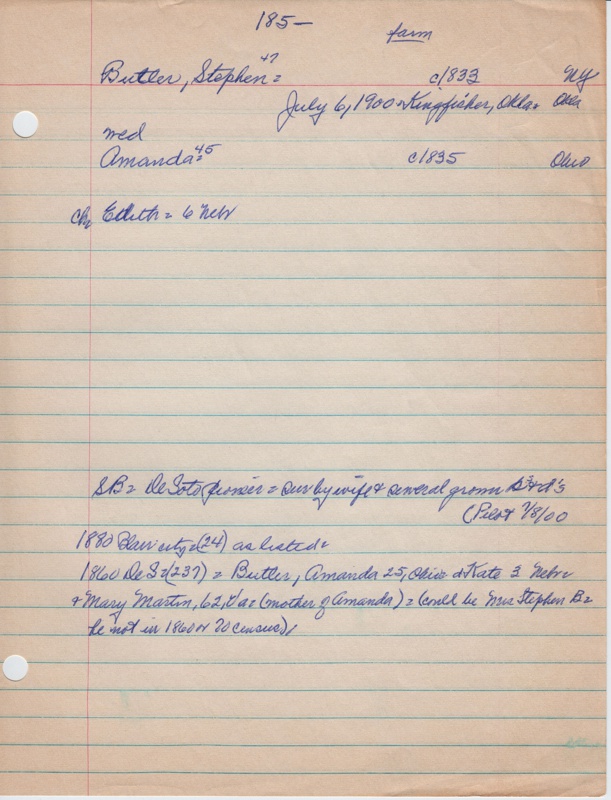 185—
farm
Butler, Stephen 47 = c/833 NY
July 6, 1900 Kingfisher, Okla. Okla
med
Amanda = 45 c/835 Ohio
Ch, Edith = 6 Nebr
SB = DeSoto pioneer = sur by wife & several grown s & d's
(Pilot 7/8/00
1880 Blair city = (24) as listed =
1860 De S = (237) = Butler, Amanda 25, Ohio = & Kate 3 Nebr =
& Mary Martin, 62, Va = (mother of Amanda) = (could be Mrs Stephen B =
he not in 1860 or 70 census)